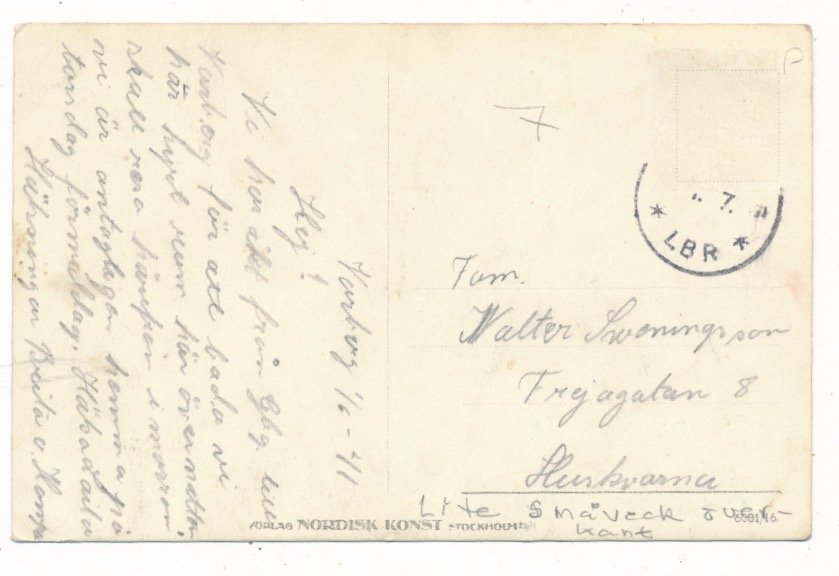 Varberg 1/6 - 41
Hej!
Vi har åkt från Gbg. till
Varberg för att bada vi
har hyrt rum här över natten,
skall resa härifrån i morron
vi är antagligen hemma på
torsdag förmiddag.
Hälsningar Brita o.
7
P
* LBR *
7.
Fam.
Walter Sweningsson
Frejagatan 8
Huskvarna
Lite småveck över-
kant
FÖRLAG NORDISK KONST STOCKHOLM
6501/16